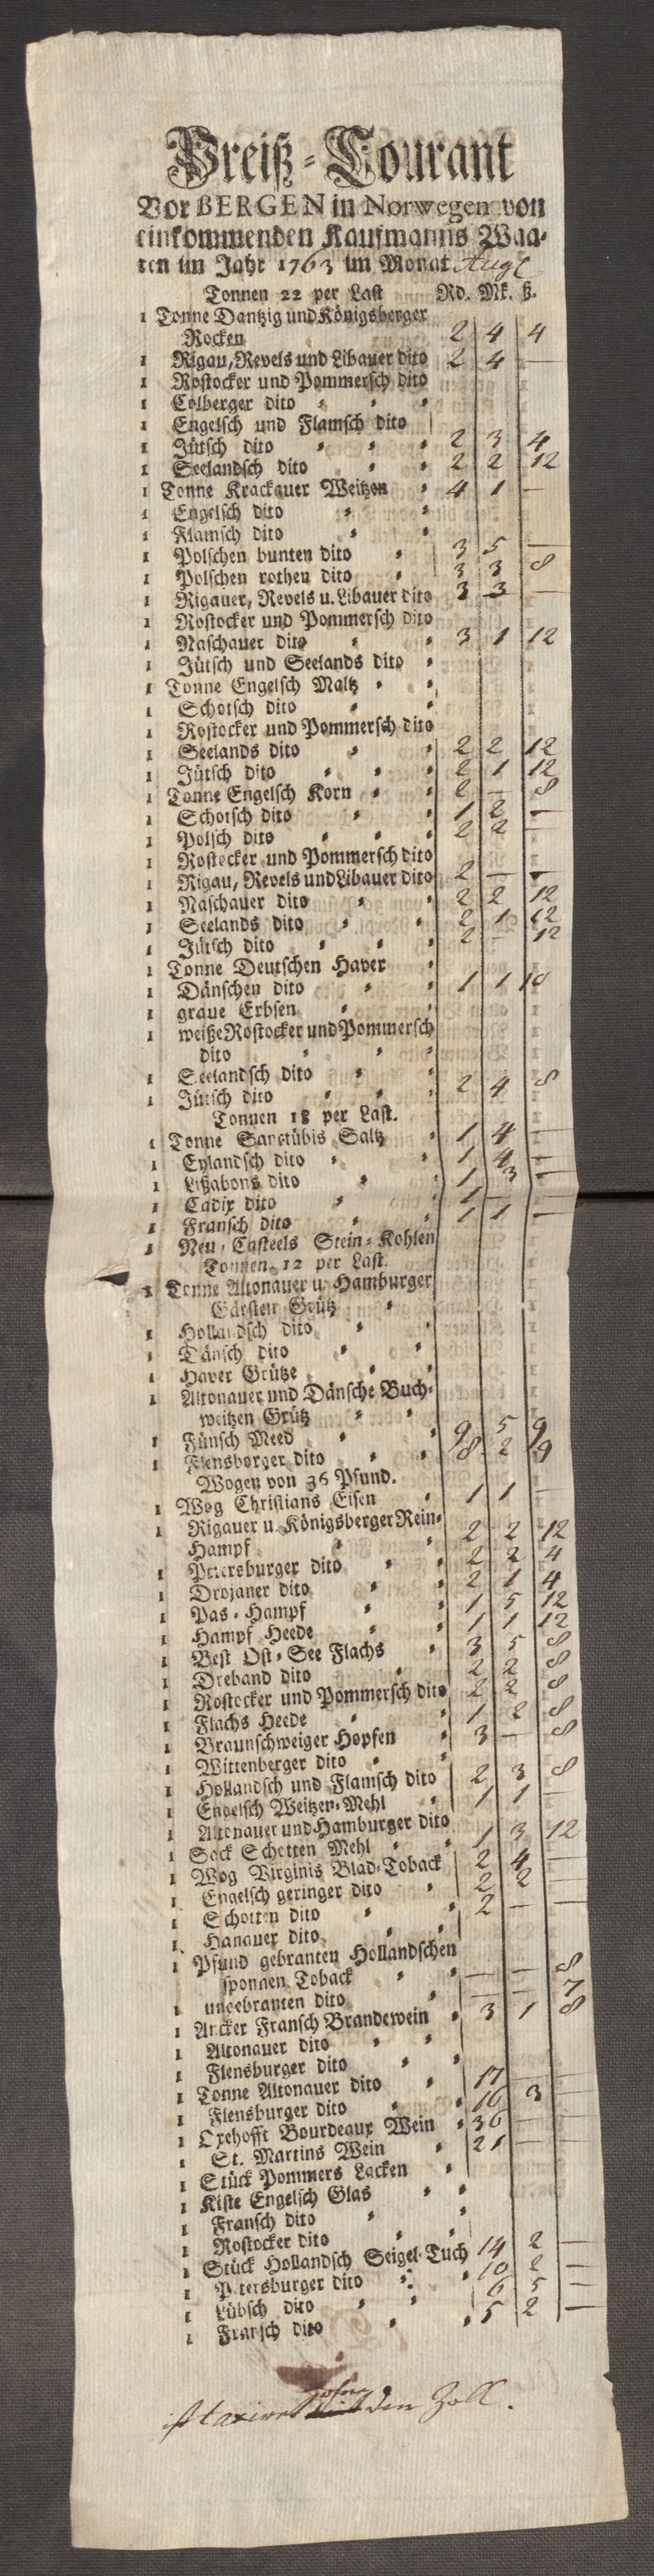 Preiß-Courant
Vor BERGEN in Norwegen von
einkommenden Kaufmanns Waa-
ren im Jahr 1763 im Monat Augt
Tonnen 22 per Last Rd. Mk. ß.
1 Tonne Dantzig und Königsberger
Rocken 2 4 4
1 Rigau, Revels und Libauer dito 2 4 —
1 Rostocker und Pommersch dito
1 Colberger dito
1 Engelsch und Flamsch dito
1 Jütsch dito 2 3 4
1 Seelandsch dito 2 2 12
1 Tonne Krackauer Weitzen 4 1 —
1 Engelsch dito
1 Flamsch dito
1 Polschen bunten dito 3 5 —
1 Polschen rothen dito 3 3 8
1 Rigauer, Revels u. Libauer dito 3 3 —
1 Rostocker und Pommersch dito
1 Naschauer dito 3 1 12
1 Jütsch und Seelands dito
1 Tonne Engelsch Maltz
1 Schotsch dito
1 Rostocker und Pommersch dito
1 Seelands dito 2 2 12
1 Jütsch dito 2 1 12
1 Tonne Engelsch Korn 2 — 8
1 Schotsch dito 1 2 —
1 Polsch dito 2 2 —
1 Rostocker und Pommersch dito
1 Rigau, Revels und Libauer dito 2 — —
1 Naschauer dito 2 2 12
1 Seelands dito 2 1 12
1 Jütsch dito 2 — 12
1 Tonne Deutschen Haver
1 Dänschen dito 1 1 10
1 graue Erbsen
1 weiße Rostocker und Pommersch
dito
1 Seelandsch dito
1 Jütsch dito 2 4 8
Tonnen 18 per Last.
1 Tonne Sanctübis Saltz 1 4 —
1 Eylandsch dito 1 4 —
1 Lißabons dito 1 3 —
1 Cadix dito 1 — —
1 Fransch dito 1 1 —
1 Neu-Casteels Stein-Kohlen
Tonnen 12 per Last.
1 Tonne Altonauer u. Hamburger
Gärsten Grütz
1 Hollandsch dito
1 Dänsch dito
1 Haver Grütze
1 Altonauer und Dänsche Buch-
weitzen Grütz
1 Fünsch Meed 9 5 9
1 Flensborger dito 8 2 9
Wogen von 36 Pfund.
1 Wog Christians Eisen 1 1 —
1 Rigauer u. Königsberger Rein-
Hampf 2 2 12
1 Petersburger dito 2 2 4
1 Drojaner dito 2 1 4
1 Pas-Hampf 1 5 12
1 Hampf Heede 1 1 12
1 Best Ost-See Flachs 3 5 8
1 Dreband dito 2 2 8
1 Rostocker und Pommersch dito 2 2 8
1 Flachs Heede 1 2 8
1 Braunschweiger Hopfen 3 — 8
1 Wittenberger dito
1 Hollandsch und Flamsch dito 2 3 8
1 Engelsch Weitzen-Mehl 1 1 —
1 Altonauer und Hamburger dito
1 Sack Schotten Mehl 1 3 12
1 Wog Virginis Blad-Toback 2 4 —
1 Engelsch geringer dito 2 2 —
1 Schotten dito 2 — —
1 Hanauer dito
1 Pfund gebranten Hollandschen
sponnen Toback — — 8
1 ungebranten dito — — 7
1 Ancker Fransch Brandewein 3 1 8
1 Altonauer dito
1 Flensburger dito
1 Tonne Altonauer dito 17 —
1 Flensburger dito 16 3
1 Oxehofft Bourdeaux Wein 36 —
1 St. Martins Wein 21 —
1 Stück Pommers Lacken
1 Kiste Engelsch Glas
1 Fransch dito
1 Rostocker dito
1 Stück Hollandsch Seigel-Tuch 14 2 —
1 Petersburger dito 10 2 —
1 Lübsch dito 6 5 —
1 Fransch dito 5 2 —
ist taxiret ohne den Zoll.